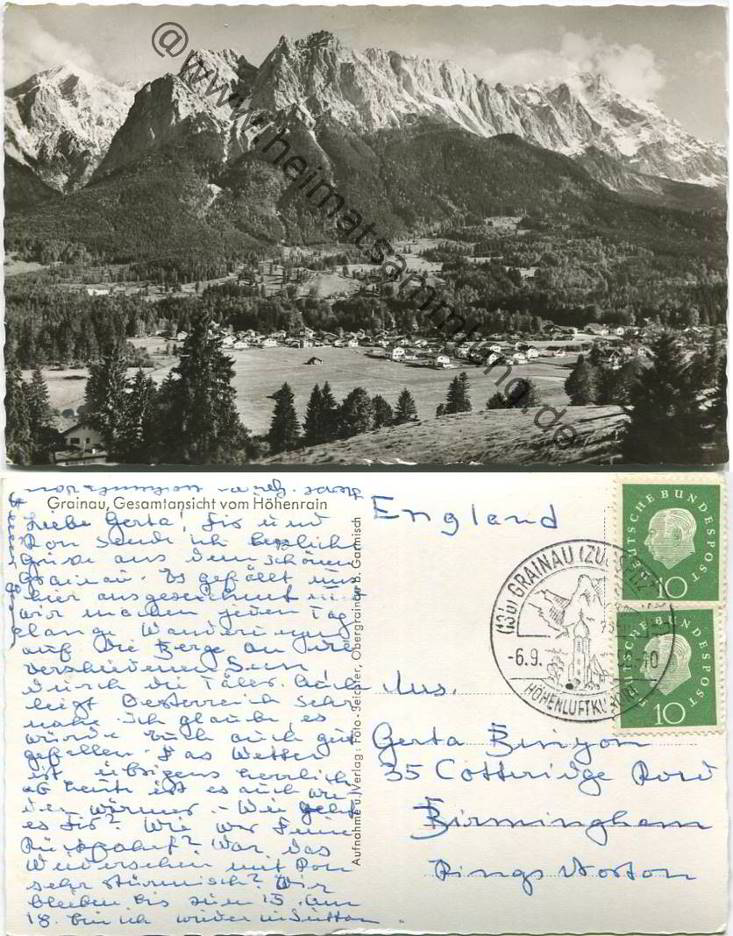 @www.heimatsammlung.de
Grainau, Gesamtansicht vom Höhenrain
Liebe Gerta! Dir und
Ron sende ich herzliche
Grüße aus dem schönen
Grainau. Es gefällt uns
hier ausgezeichnet und
wir machen jeden Tag
lange Wanderungen
auf die Berge an die
verschiedenen Seen
durch die Täler.
liegt Oesterreich sehr
nahe. Ich glaube, es
würde Euch auch gut
gefallen. Das Wetter
ist übrigens herrlich
ab heute ist es auch wie
der wärmer. - Wie geht
es Dir? Wie war Deine
Rückfahrt? War das
Wiedersehen mit Ron
sehr stürmisch? Wir
bleiben bis zum 15. Am
18. bin ich wieder in Sutton.
Aufnahme u. Verlag: Foto-
Obergrainau b. Garmisch
England
DEUTSCHE BUNDESPOST
10
DEUTSCHE BUNDESPOST
10
(13b) GRAINAU (ZUGSPITZE
-6.9.
HÖHENLUFTKURORT
Mrs.
Gerta Binyon
35 Cotteridge Road
Birmingham
Kings Norton